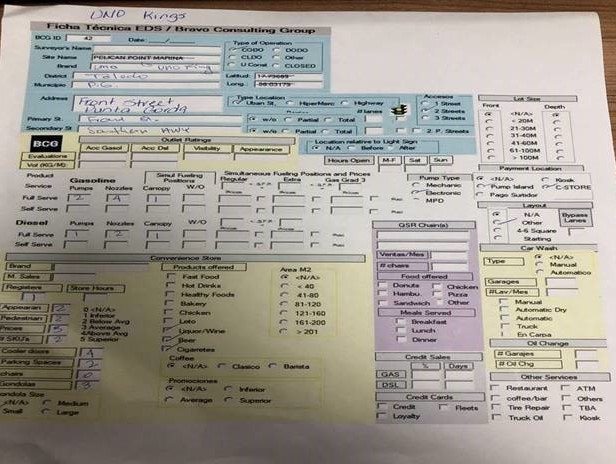 UNO Kings
Ficha Técnica EDS / Bravo Consulting Group
BCG ID 42 Date:
Surveyor's Name
Site Name PELICAN POINT MARINA
Brand Uno Uno King
District Toledo
Municipio P.G.
Type of Operation
CODO DODO
CLDO Other
U Conal CLOSED
Latitud:
Long.:
Address Front Street
Punta Gorda
Primary St. Front St.
Secondary St Southern Hwy
Type Location
Urban St. HiperMerc Highway
# lanes
w/o Partial Total
w/o Partial Total
Accesos
1 Street
2 Streets
3 Streets
2 P. Streets
Lot Size
Front Depth
<N/A>
< 20M
21-30M
31-40M
41-60M
61-100M
> 100M
BCG
Outlet Ratings
Acc Gasol Acc Del Visibility Appearance
Evaluations
Vol (KG/M):
Location relative to Light Sign
N/A Before After
Hours Open M-F Sat Sun
Payment Location
<N/A> Kiosk
Pump Island C-STORE
Pago Surtidor
Product Gasoline Simul Fueling Positions
Simultaneous Fueling Positions and Prices
Regular Extra Gas Grad 3
Service Pumps Nozzles Canopy W/O
Full Serve 2 4 1
Self Serve
Diesel Pumps Nozzles Canopy W/O
Full Serv 1 2 1
Self Serve
Pump Type
<N/A>
Mechanic
Electronic
MPD
Layout
N/A
Other
4-6 Square
Starting
Bypass Lanes
QSR Chain(s)
Ventas/Mes
# chairs
Food offered
Donuts Chicken
Hambu. Pizza
Sandwich Other
Meals Served
Breakfast
Lunch
Dinner
Car Wash
Type <N/A>
Manual
Automatico
Garages
#Lav/Mes
Manual
Automatic Dry
Automatic
Truck
En Carpa
Oil Change
# Garajes
# Oil Chg
Convenience Store
Brand
M. Sales
Registers Store Hours
1
Appearan 2
Pedestrian 2
Prices 5
# SKU's 2
0 <N/A>
1 Inferior
2 Below Avg
3 Average
4 Above Avg
5 Superior
Cooler doors 4
Parking Spaces 2
chairs 0
Gondolas 3
Gondola Size
<N/A> Medium
Small Large
Products offered
Fast Food
Hot Drinks
Healthy Foods
Bakery
Chicken
Loto
Liquor/Wine
Beer
Cigarettes
Area M2
<N/A>
< 40
41-80
81-120
121-160
161-200
> 201
Coffee
<N/A> Clasico Barista
Promociones
<N/A> Inferior
Average Superior
Credit Sales
% Days
GAS
DSL
Credit Cards
Credit Fleets
Loyalty
Other Services
Restaurant ATM
coffee/bar Others
Tire Repair TBA
Truck Oil Kiosk